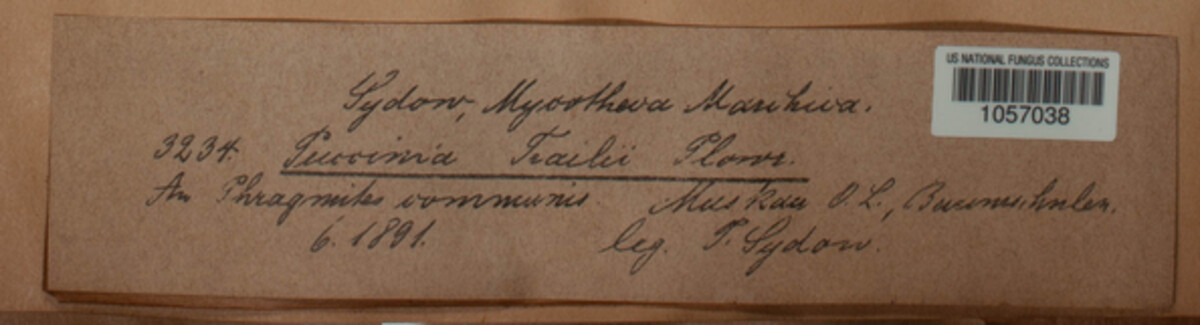 US NATIONAL FUNGUS COLLECTIONS
1057038
Sydow, Mycotheca Marchica.
3234. Puccinia Trailii Plowr.
An Phragmites communis Muskau O. L., Baumschulen.
6. 1891. leg. P. Sydow.